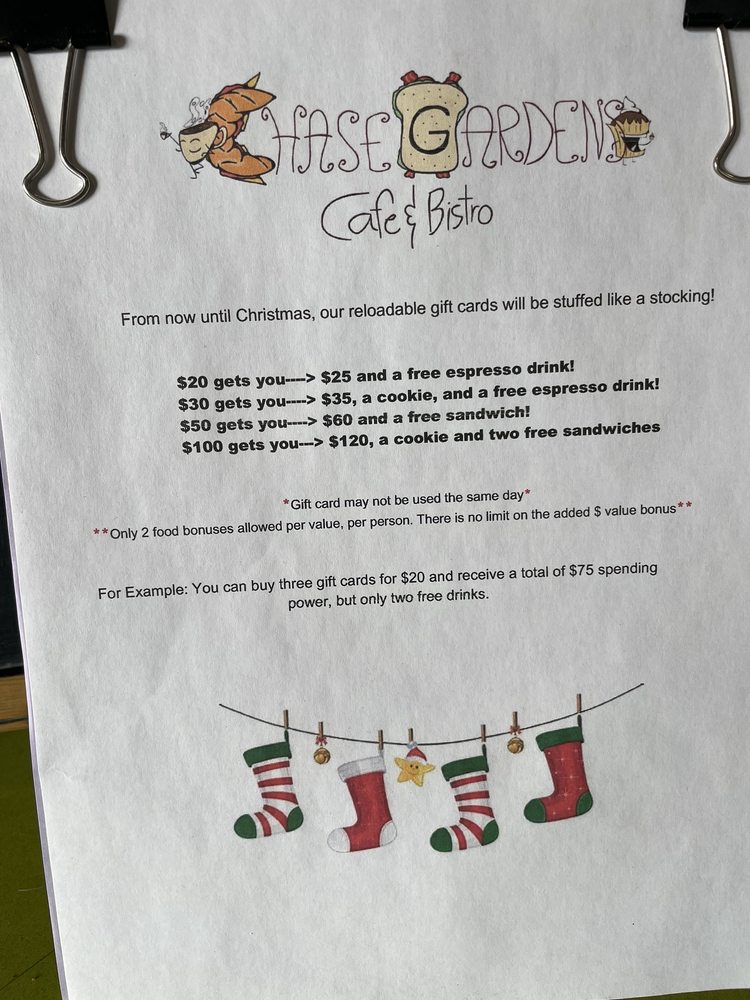 Chase Gardens
Cafe & Bistro
From now until Christmas, our reloadable gift cards will be stuffed like a stocking!
$20 gets you----> $25 and a free espresso drink!
$30 gets you----> $35, a cookie, and a free espresso drink!
$50 gets you----> $60 and a free sandwich!
$100 gets you---> $120, a cookie and two free sandwiches
*Gift card may not be used the same day*
**Only 2 food bonuses allowed per value, per person. There is no limit on the added $ value bonus**
For Example: You can buy three gift cards for $20 and receive a total of $75 spending
power, but only two free drinks.